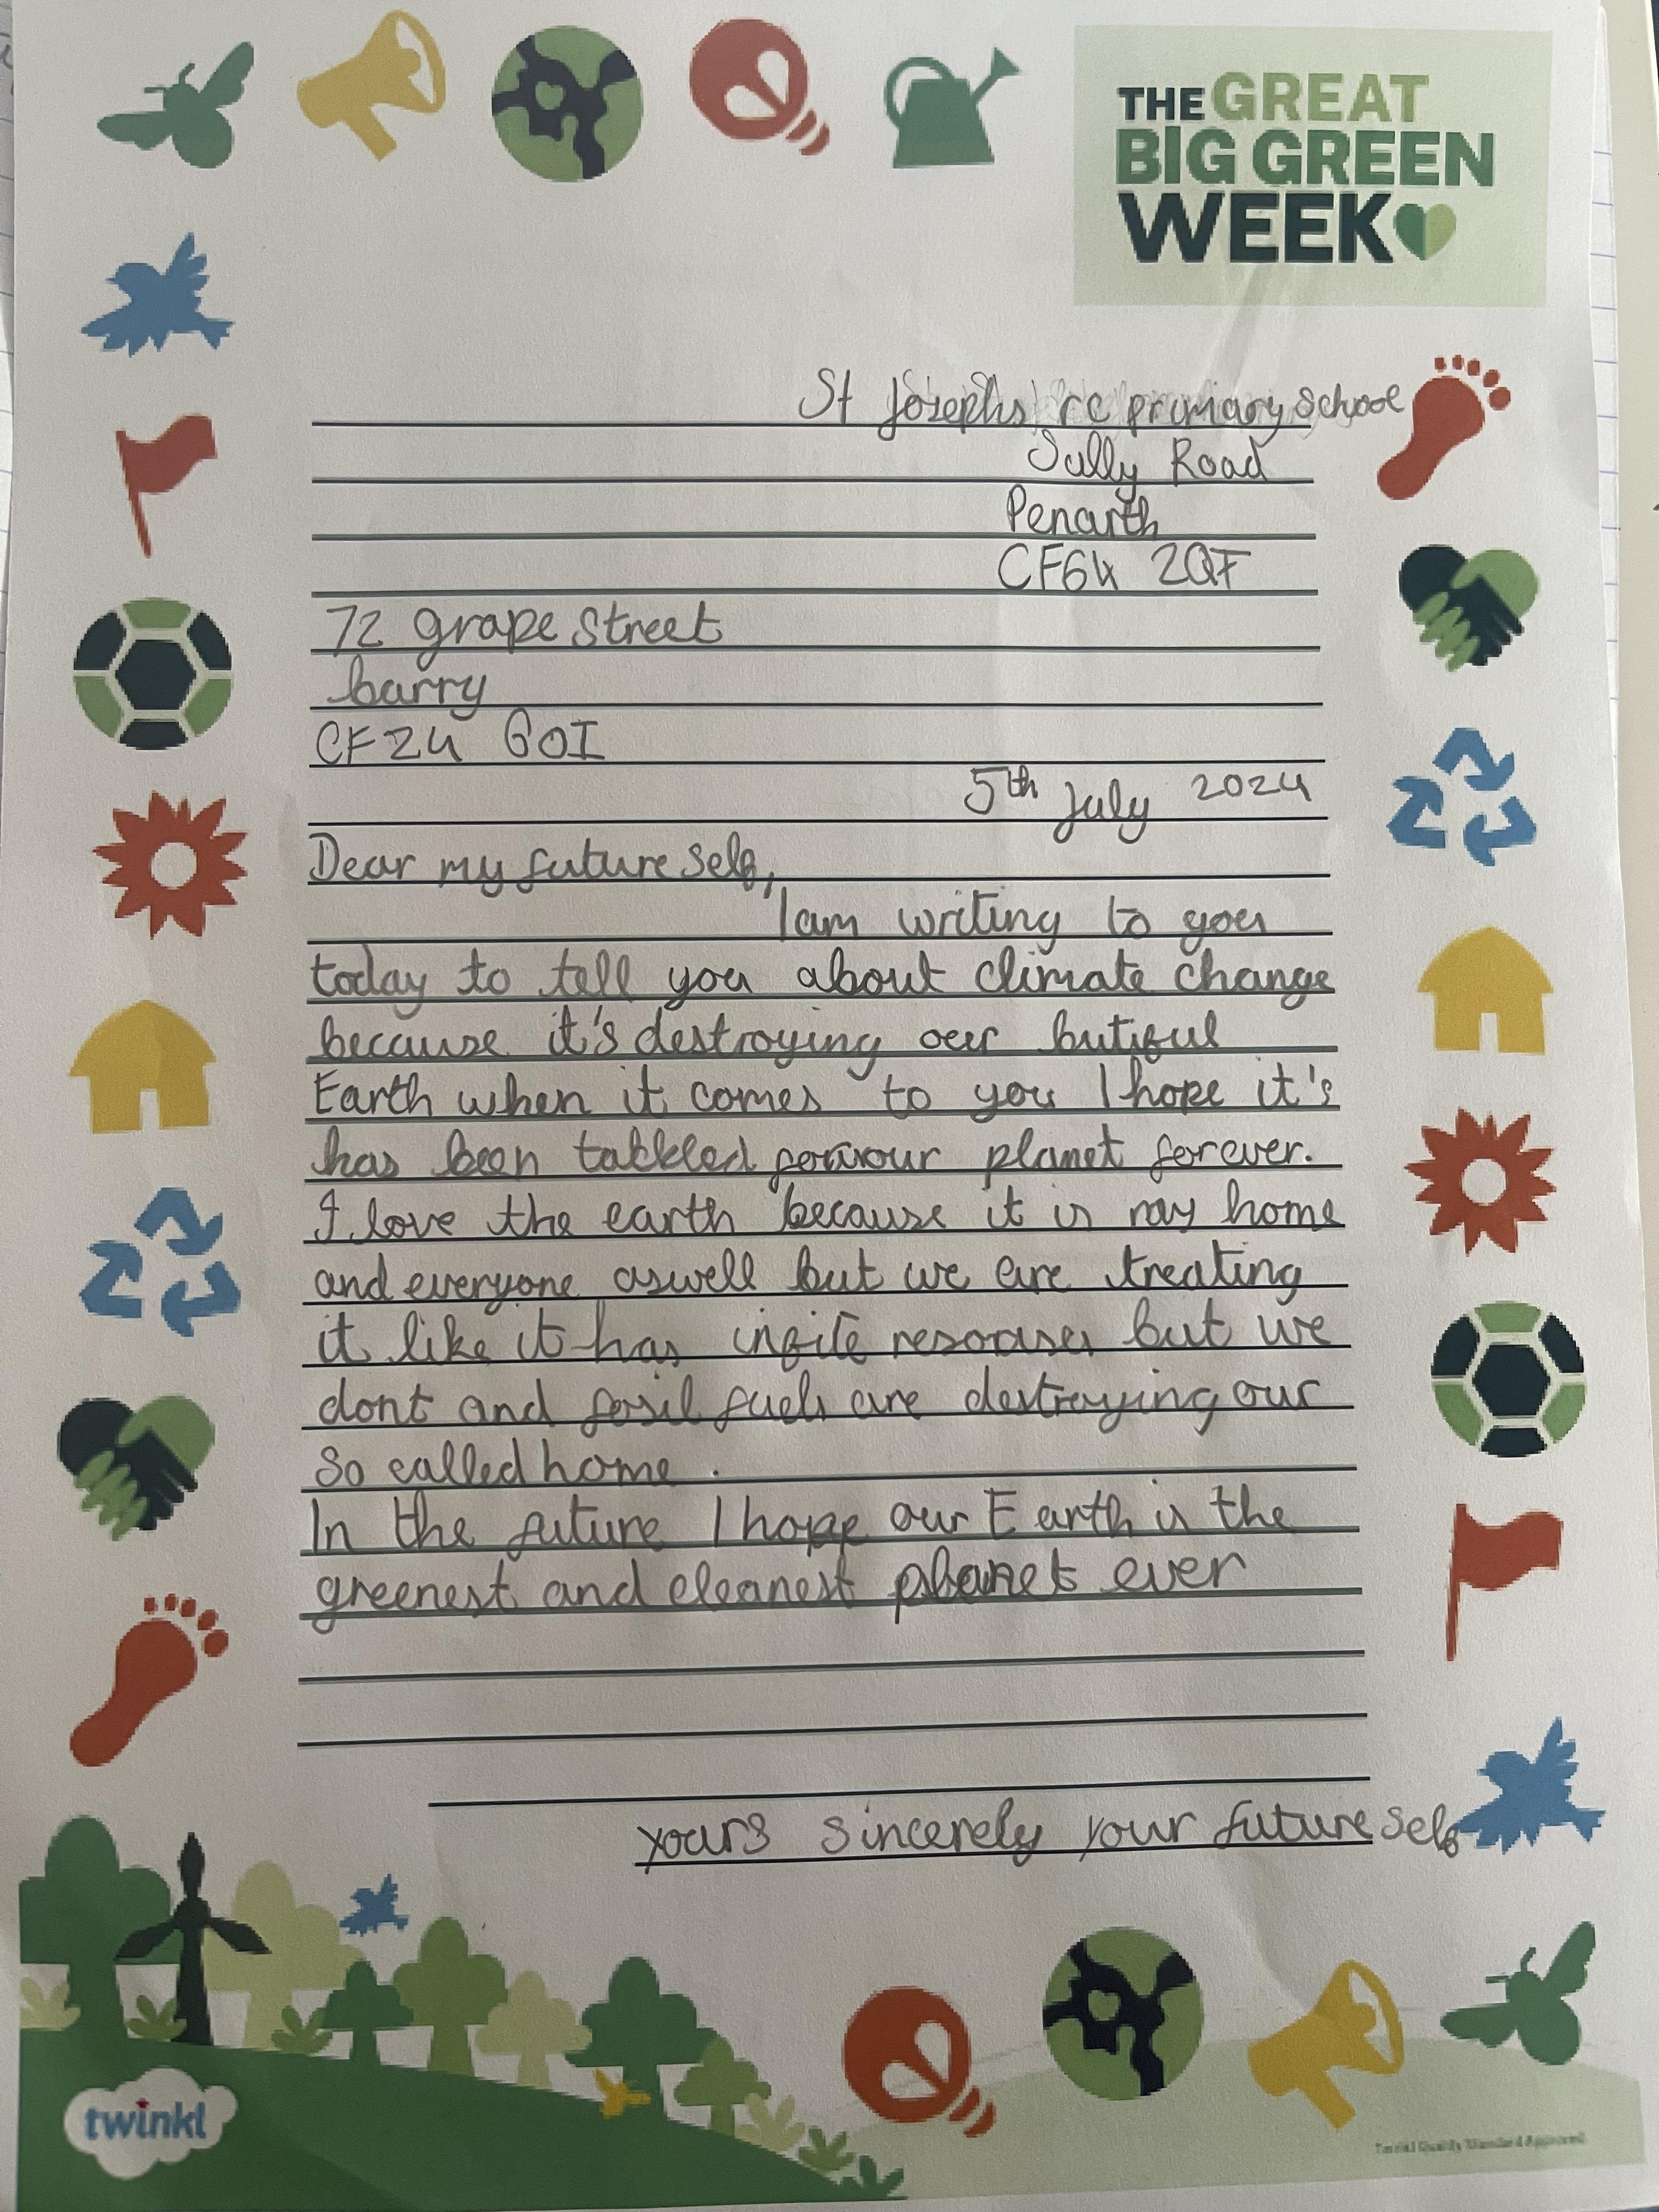 THE GREAT
BIG GREEN
WEEK
St Josephs rc primary school
Sully Road
Penarth
CF64 2QF
72 grape street
barry
CF24 GOI
5th July 2024
Dear my future self,
I am writing to you
today to tell you about climate change
because it's destroying our butiful
Earth when it comes to you I hope it's
has been tackled for our planet forever.
I love the earth because it is my home
and everyone aswell but we are treating
it like it has infite resorses but we
dont and fosil fuels are destroying our
so called home.
In the future I hope our Earth is the
greenest and cleanest planet ever
yours sincerely your future self
twinkl
Twinkl Quality Standard Approved